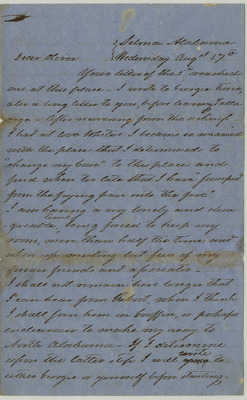 Selma Alabama
Wednesday Augst 17th
Dear Oliver
Your letter of the 5th reached
me at this place - I wrote to Georgie twice,
also a long letter to you, before leaving Talla-
dega - After recovering from the
I had at Wm White's I became so wearied
with the place that I determined to
"change my base" to this place and
find when too late that I have "jumped
from the frying pan into the fire"
I am having a very lonely and disa-
greeable time, being forced to keep my
room, more than half the time and
when up meeting but few of my
former friends and associates -
I shall not remain here longer than
I can hear from , when I think
I shall join him in , or perhaps
endeavour to make my way to
North Alabama - If I determine
upon the latter step I will write to
either Georgie or yourself before starting